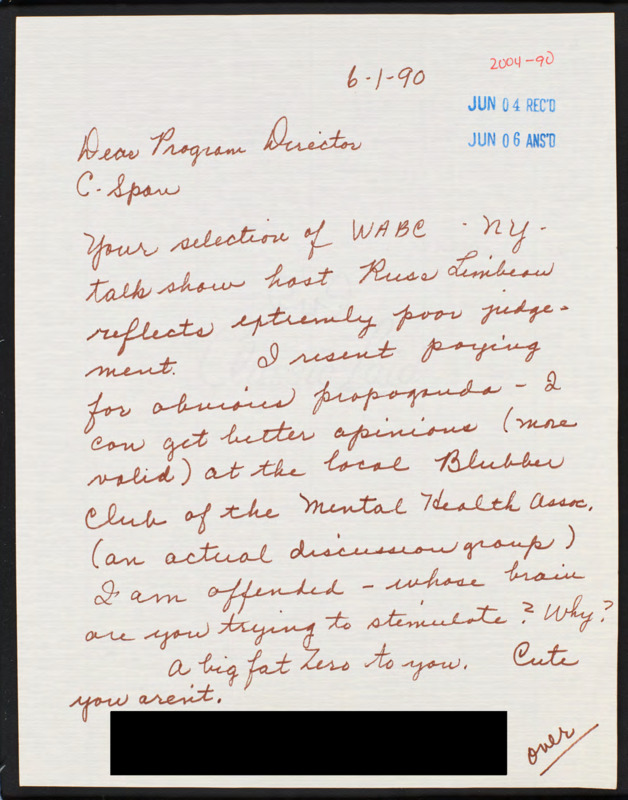 6-1-90
2004-90
JUN 04 REC'D
JUN 06 ANS'D
Dear Program Director
C-Span
Your selection of WABC - NY -
talk show host Russ Limbeau
reflects extremly poor judge-
ment. I resent paying
for obvious propoganda - I
can get better opinions (more
valid) at the local Blubber
Club of the Mental Health Assoc.
(an actual discussion group)
I am offended - whose brain
are you trying to stemulate? Why?
A big fat Zero to you. Cute
you aren't.
over